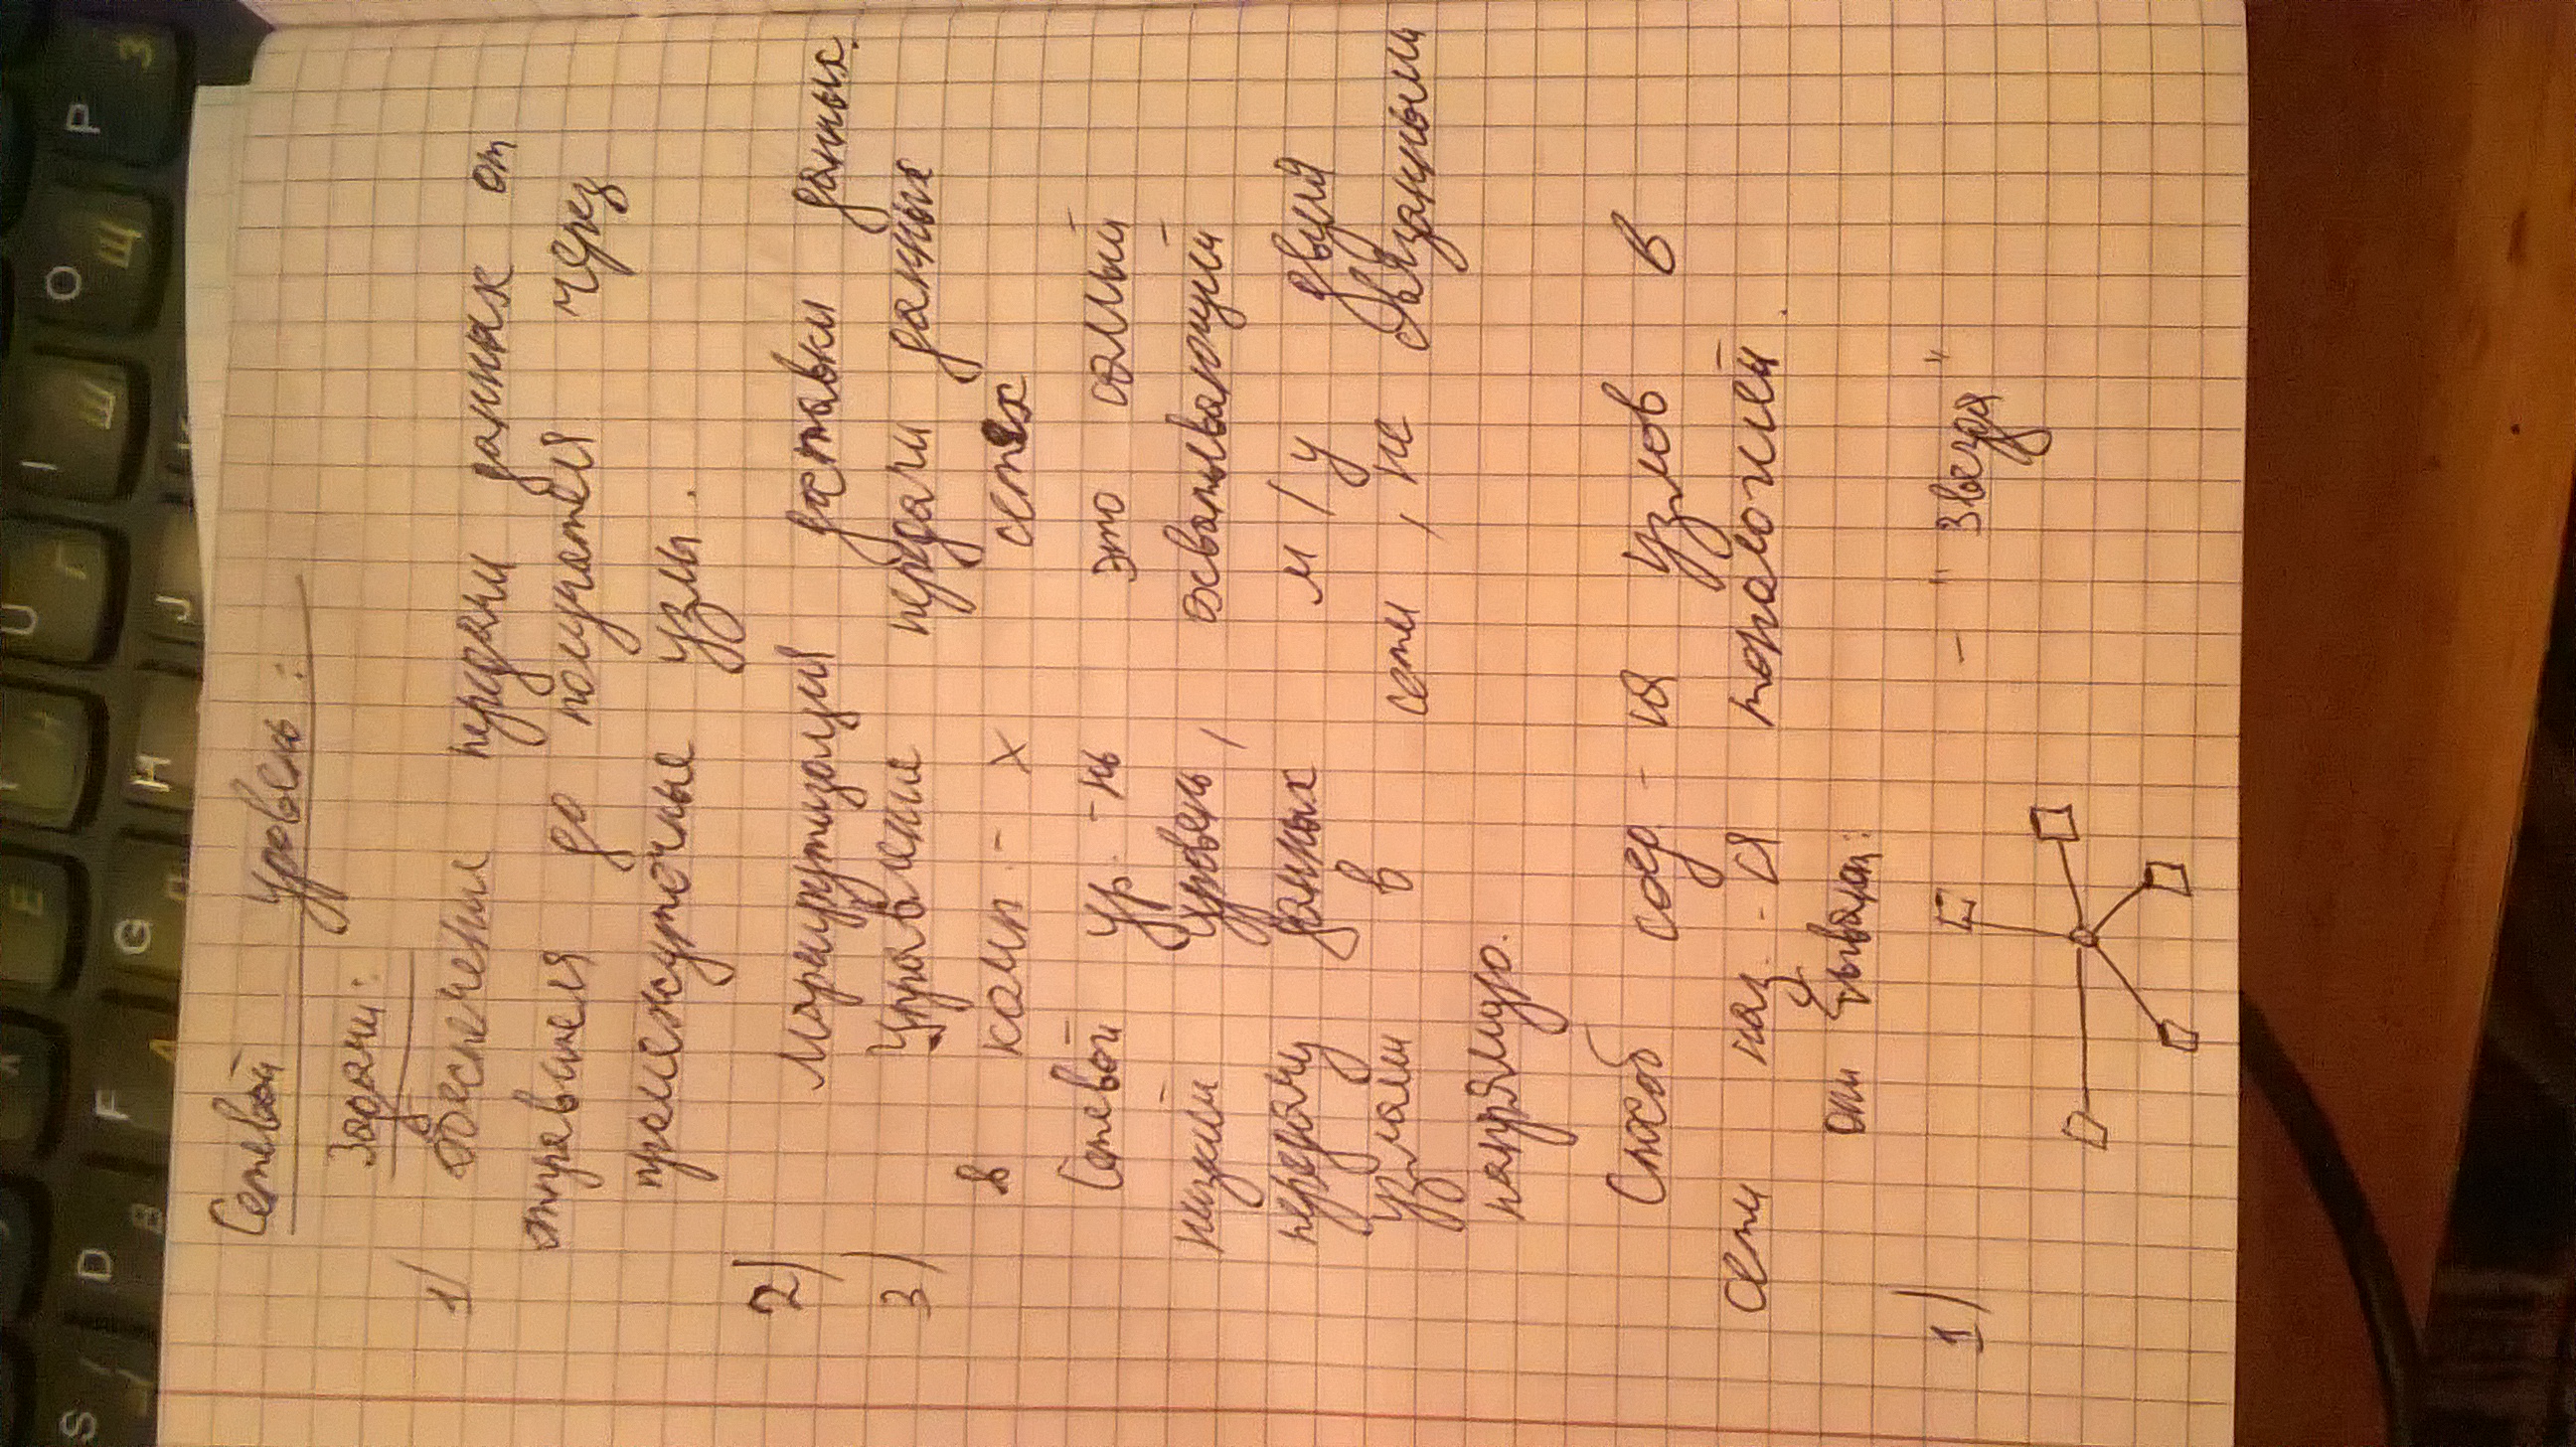 E Н U Г I Ш O Щ P З
S D В F А G П H J
Сетевой уровень:
Задачи:
1) обеспечение передачи данных от
отправителя до получателя через
промежуточные узлы.
2) Маршрутизация доставки данных.
3) Управление передачи данных
в комп.-х сетях
Сетевой ур.-нь это самый
низкий уровень, охватывающий
передачу данных м/у двумя
узлами в сети, не связанными
напрямую.
Способ соед-ия узлов в
сети наз.-ся топологией.
они бывают:
1) - "Звезда"